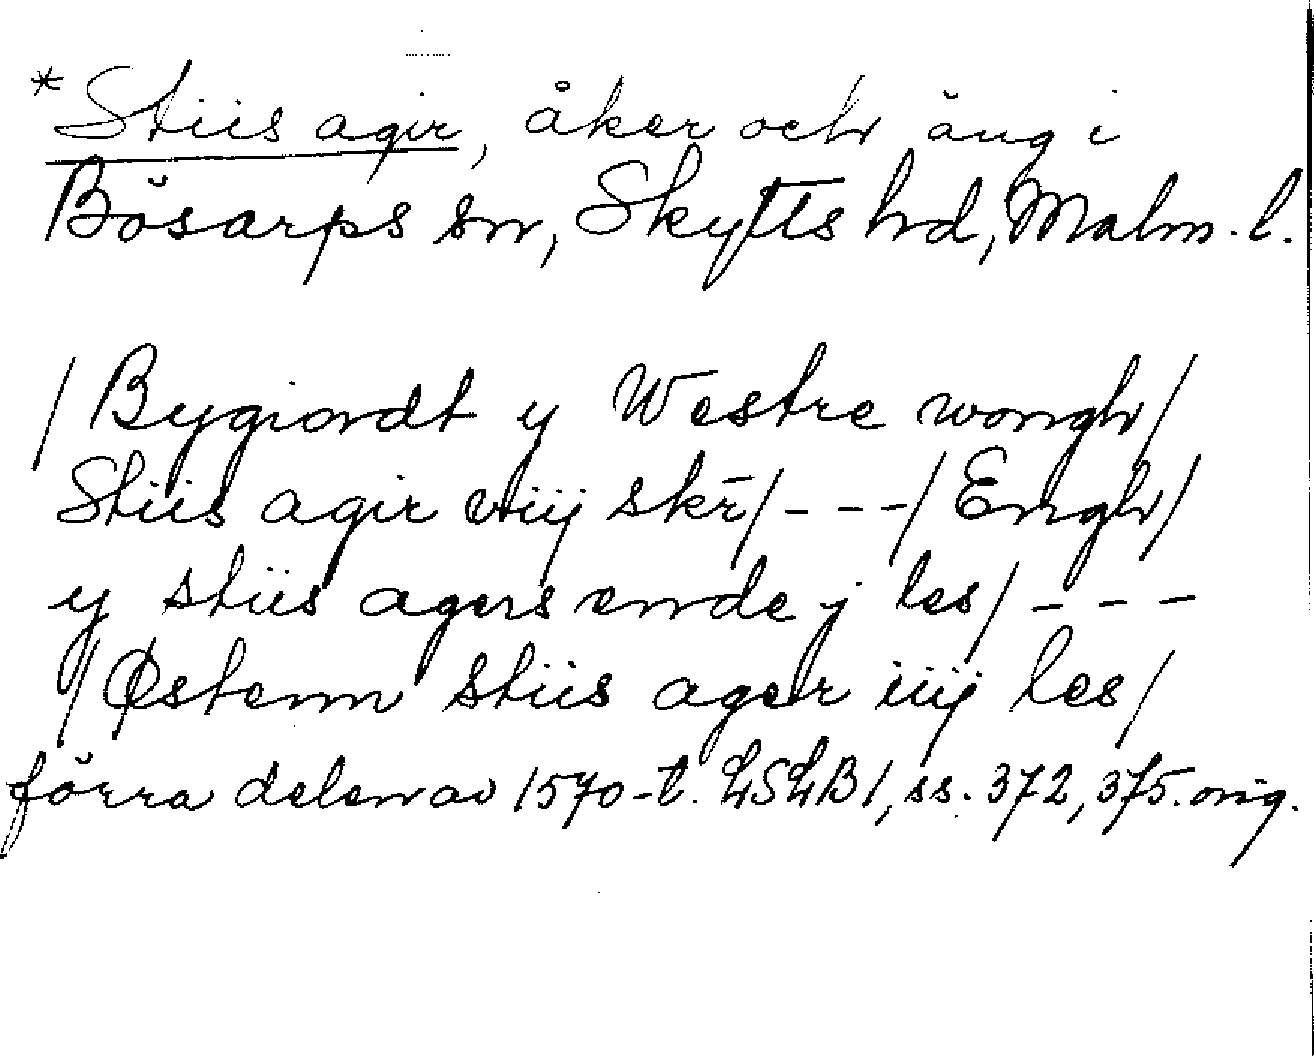 *Stiis agir, åker och äng i
Bösarps sn, Skytts hd, Malm. l.
/Bygiordt y Westre wongh/
Stiis agir viij skr̄/---/Engh/
y stiis agers ende j les/---
/Østenn stiis ager iiij les/
förra delen av 1570-t. LSLB1, ss. 372, 375. orig.